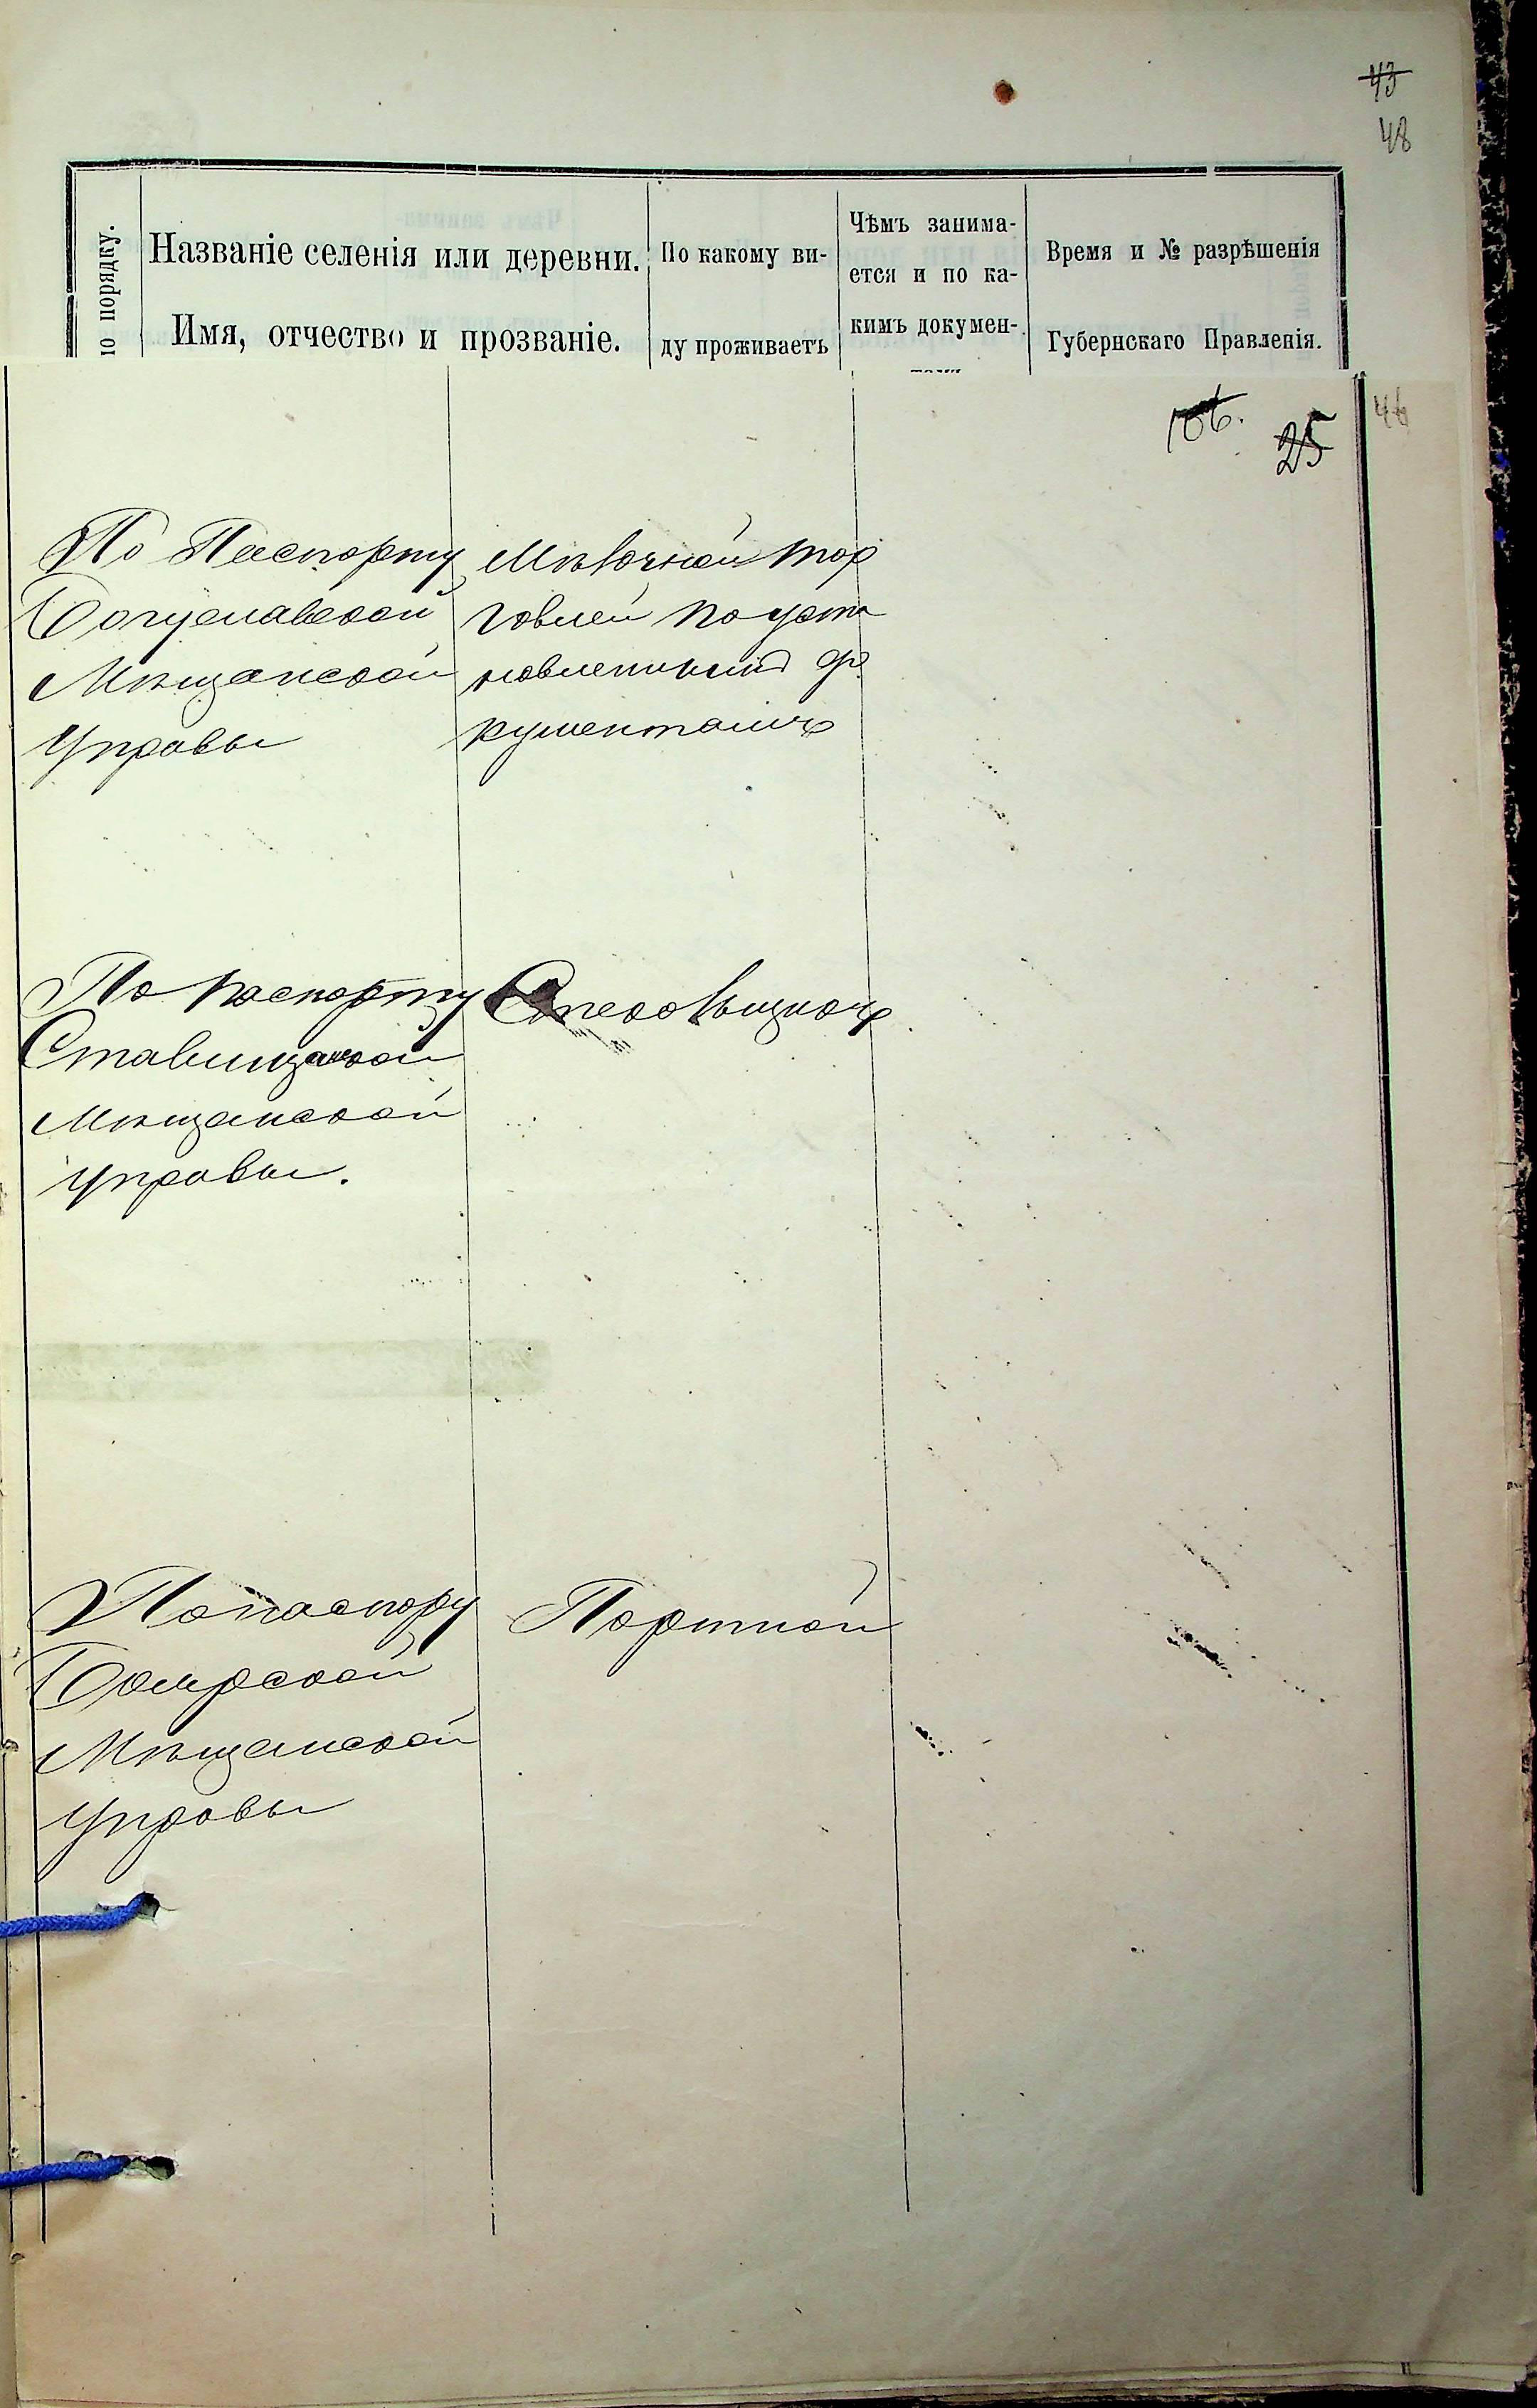 43
48
по порядку.
Названіе селенія или деревни.
Имя, отчество и прозваніе.
По какому ви-
ду проживаетъ
Чѣмъ занима-
ется и по ка-
кимъ докумен-
Время и № разрѣшенія
Губернскаго Правленія.
46
25
По Паспорту
Богуславской
Мѣщанской
Управы
Мѣлочной тор
говлей по уста
новленнымъ до
кументамъ
По паспорту
Ставищанской
Мѣщанской
управы.
Стекольщикъ
По паспору
Мѣщанской
Управы
Портной